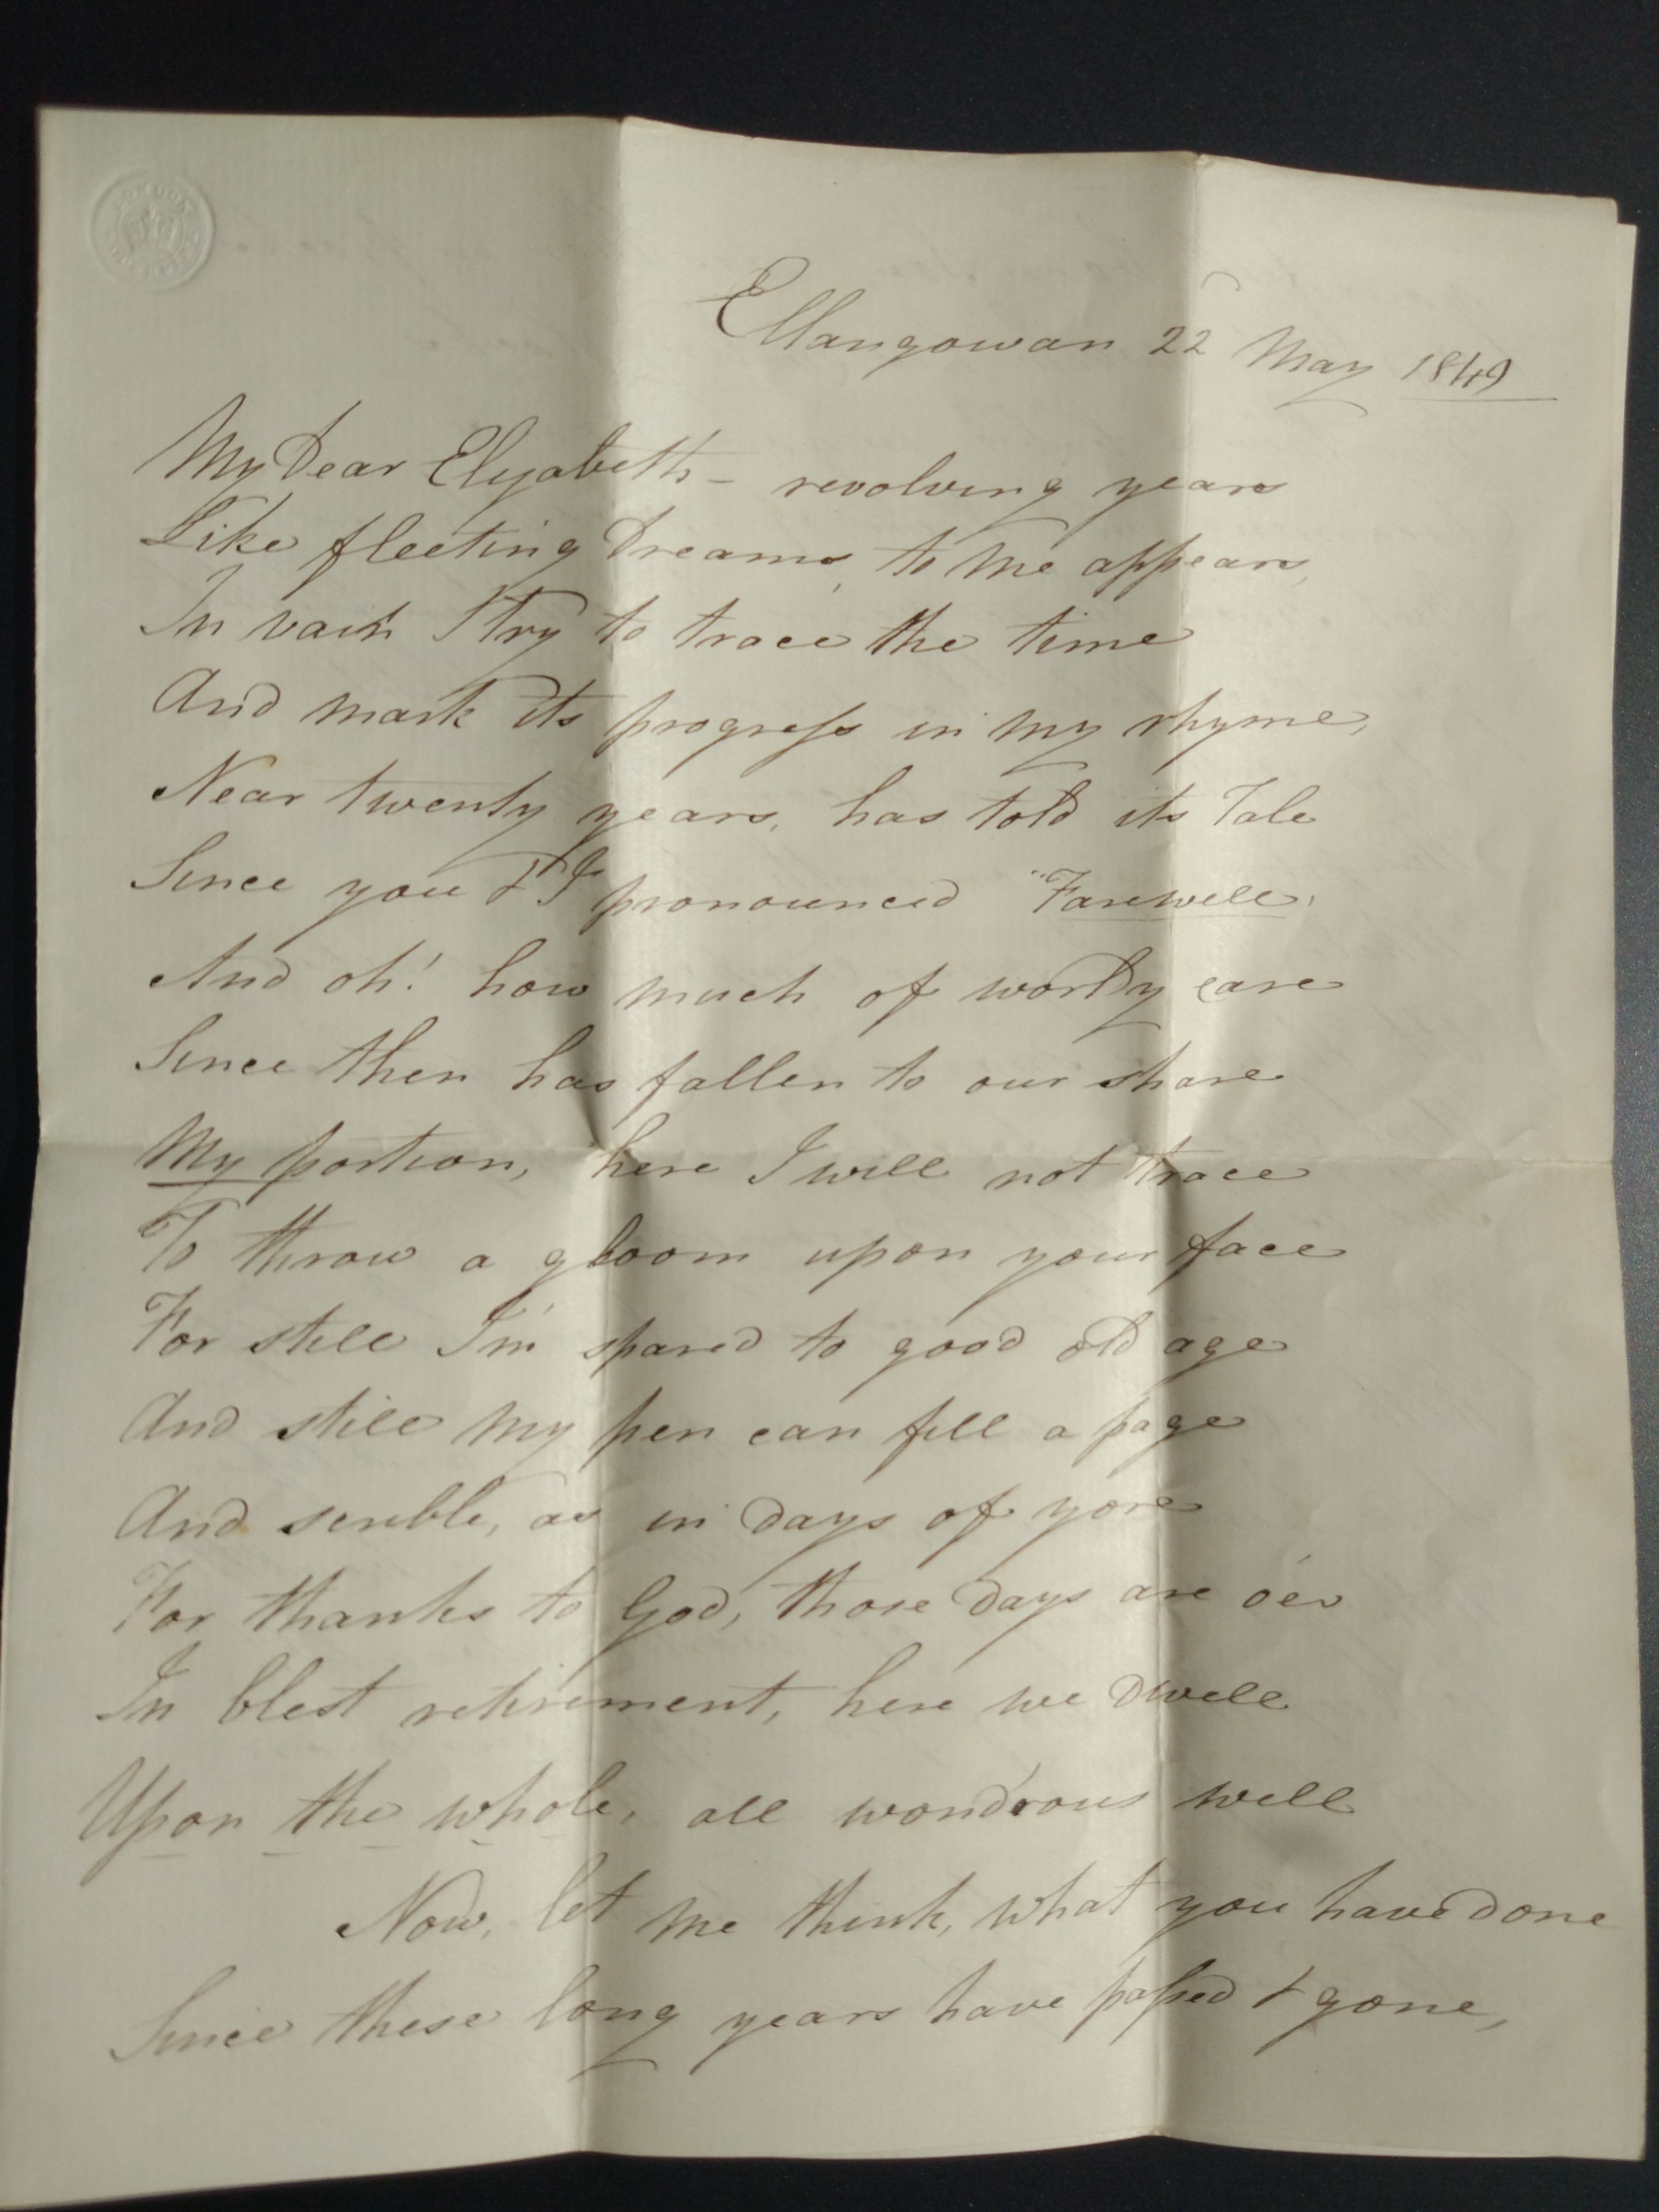 Ellangowan 22 May 1849
My Dear Elizabeth - revolving years
Like fleeting Dreams, to me appears,
In vain I try to trace the time
And mark its progress in my rhyme,
Near twenty years, has told its Tale
Since you & I pronounced "Farewell,
And oh! how much of worldy care
Since then has fallen to our share
My portion, here I will not trace
To throw a gloom upon your face
For still I'm spared to good old age
And still my pen can fill a page
And scribble, as in days of yore
For thanks to God, those days are o'er
In blest retirement, here we dwell
Upon the whole, all wond'rous well
Now, let me think, what you have done
Since these long years have passed & gone,